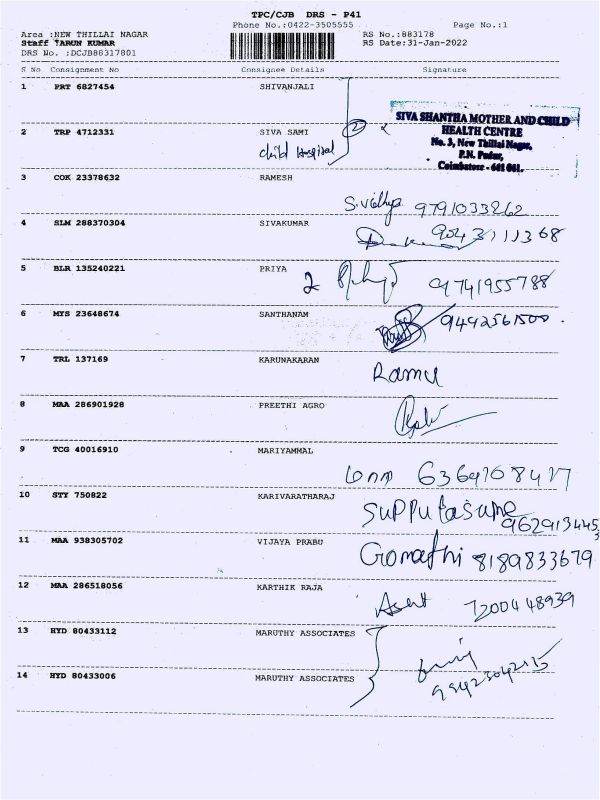 TPC/CJB DRS - P41
Phone No.:0422-3505555 Page No.:1
Area :NEW THILLAI NAGAR RS No.:883178
Staff TARUN KUMAR RS Date:31-Jan-2022
DRS No. :DCJB88317801
S No Consignment No Consignee Details Signature
1 PRT 6827454 SHIVANJALI
SIVA SHANTHA MOTHER AND CHILD
HEALTH CENTRE
No. 3, New Thillai Nagar,
P.N. Pudur,
Coimbatore - 641 041.
2 TRP 4712331 SIVA SAMI 2
child Hospital
3 COK 23378632 RAMESH
S.vidhya 9791033262
4 SLM 288370304 SIVAKUMAR
9043111368
5 BLR 135240221 PRIYA
9741955788
6 MYS 23648674 SANTHANAM
9492561500
7 TRL 137169 KARUNAKARAN
Ramu
8 MAA 286901928 PREETHI AGRO
9 TCG 40016910 MARIYAMMAL
10 STY 750822 KARIVARATHARAJ
11 MAA 938305702 VIJAYA PRABU
Gomathi 8189833679
12 MAA 286518056 KARTHIK RAJA
7200448939
13 HYD 80433112 MARUTHY ASSOCIATES
14 HYD 80433006 MARUTHY ASSOCIATES